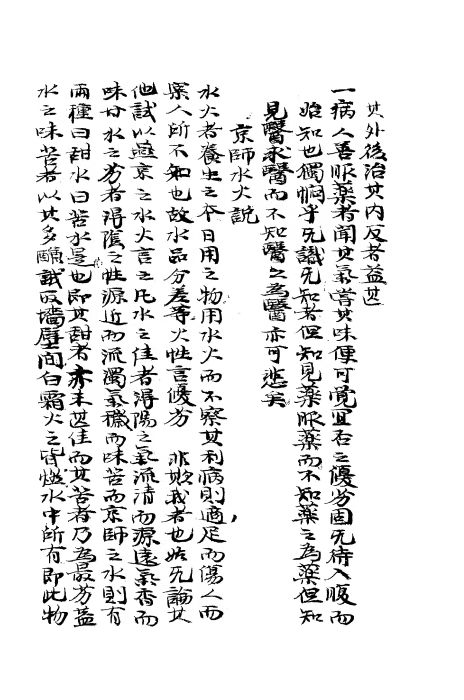 其外後治其内反者益甚
一病人善服薬者聞其氣嘗其味便可覺宜否之優劣固旡待入腹而
始知也獨惘乎旡識旡知者但知見薬服薬而不知薬之為薬但知
見醫求醫而不知醫之為醫亦可悲矣
京師水火說
水火者養生之本日用之物用水火而不察其利病則適足而傷人而
衆人所不知也故水品分差等火性言優劣 非欺我者也姑旡論其
他試以燕京之水火言之凡水之佳者得陽之氣流清而源遠氣香而
味甘水之劣者得陰之性源近而流濁氣穢而味苦而京師之水則有
兩種曰甜水曰苦水是也即其甜者亦未甚佳而其苦者乃為最劣蓋
水之味苦者以其多鹻試取墻壁間白霜火之皆燃水中所有即此物